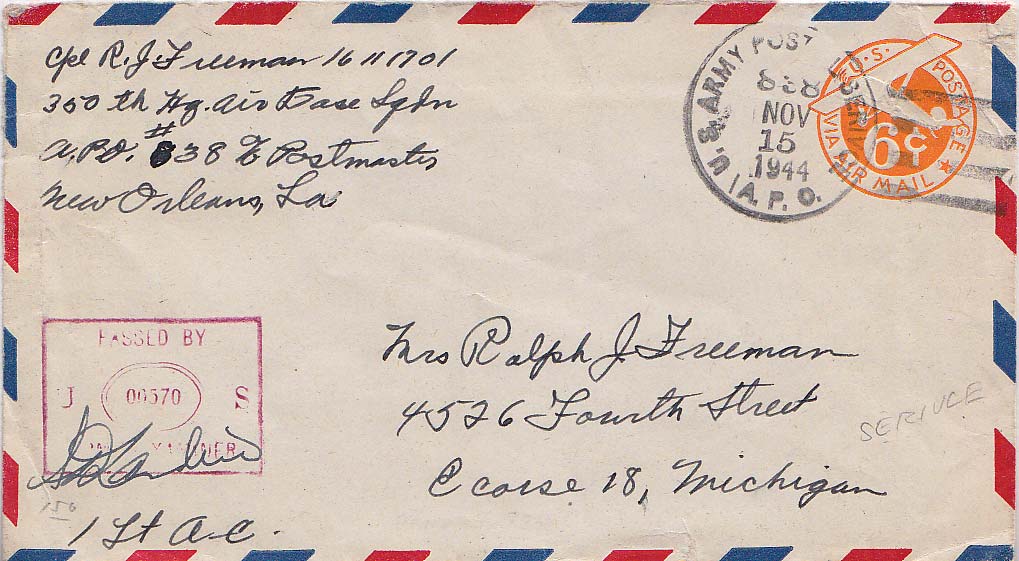 Cpl R. J. Freeman 16111701
350 th Hq. Air Base Sqdn
A.P.O. # 838 % Postmaster
New Orleans, La
U.S. ARMY POSTAL SERVICE
838
NOV
15
1944
A.P.O.
U.S. POSTAGE
6¢
VIA AIR MAIL
PASSED BY
U 00570 S
ARMY EXAMINER
1 Lt A.C.
150
Mrs Ralph J. Freeman
4526 Fourth Street
Ecorse 18, Michigan
SERIUCE